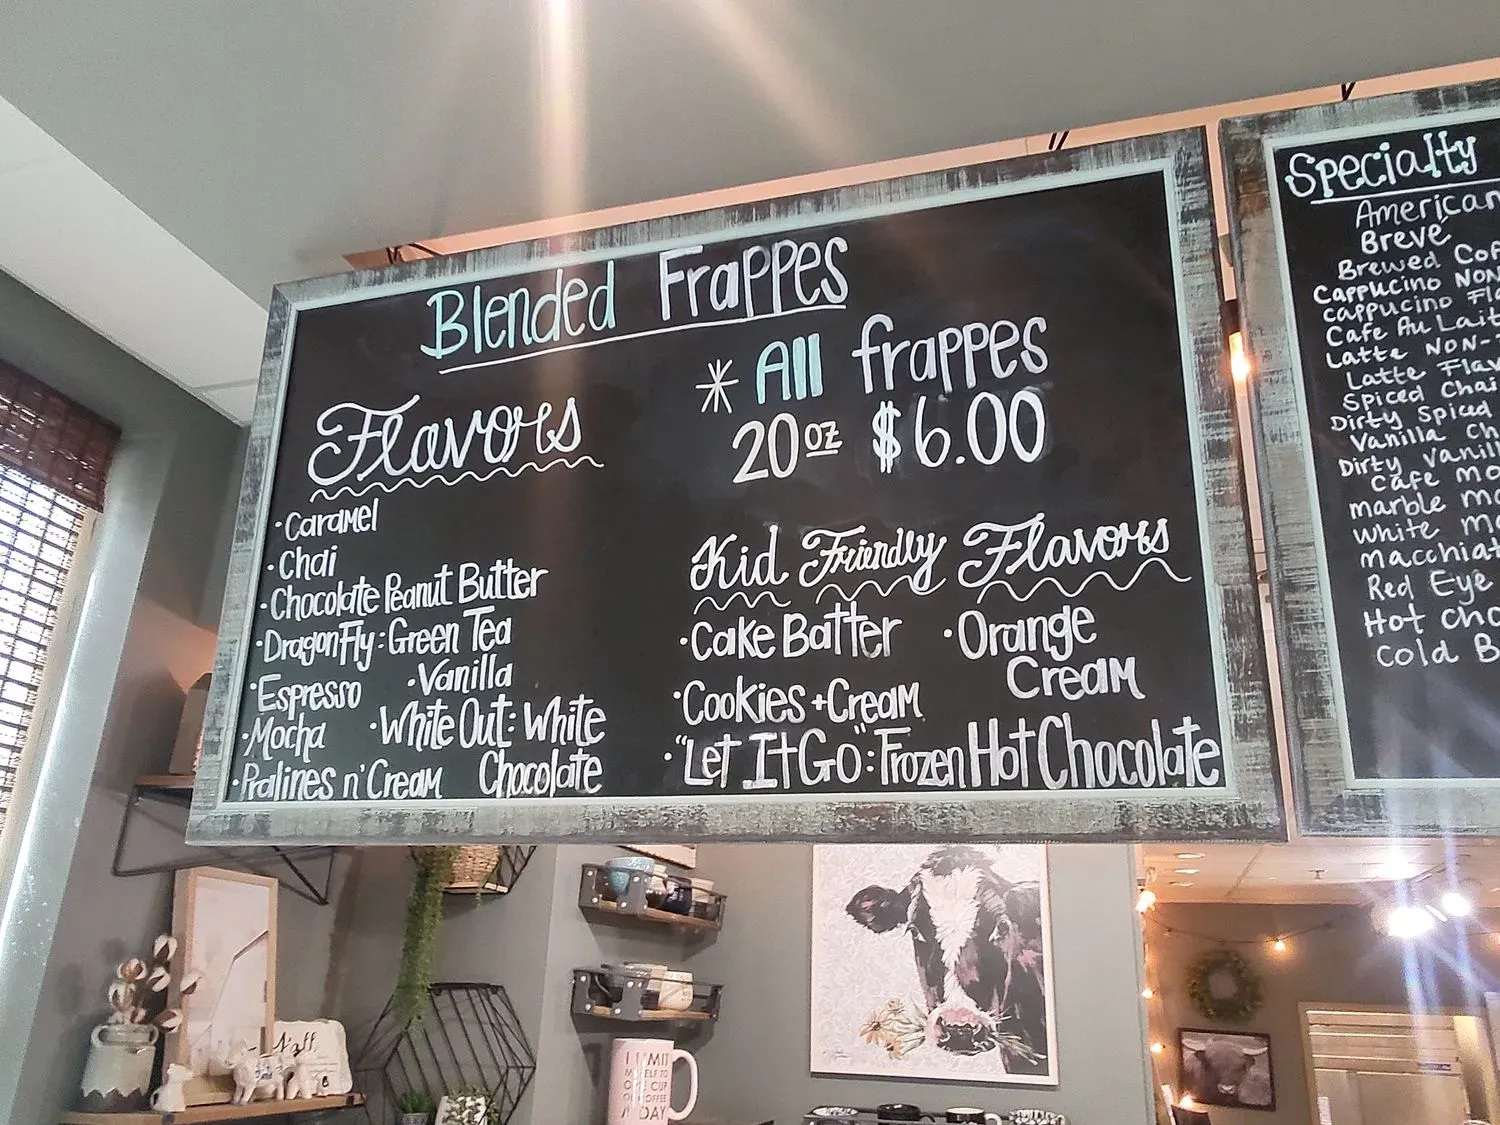 Blended Frappes
* All frappes
20 oz $6.00
Flavors
·Caramel
·Chai
·Chocolate Peanut Butter
·DragonFly: Green Tea
·Espresso
·Vanilla
·Mocha
·White Out: White
Chocolate
·Pralines n' Cream
Kid Friendly Flavors
·Cake Batter
·Orange
Cream
·Cookies + Cream
·"Let It Go": Frozen Hot Chocolate
Specialty
American
Breve
Brewed
Cappucino NON
Cappucino
Cafe Au Lait
Latte NON-
Latte
Spiced Chai
Dirty Spiced
Vanilla
Dirty
Cafe
Marble
White
Red Eye
Hot
Cold
I LIMIT
MYSELF TO
ONE CUP
OF COFFEE
A DAY